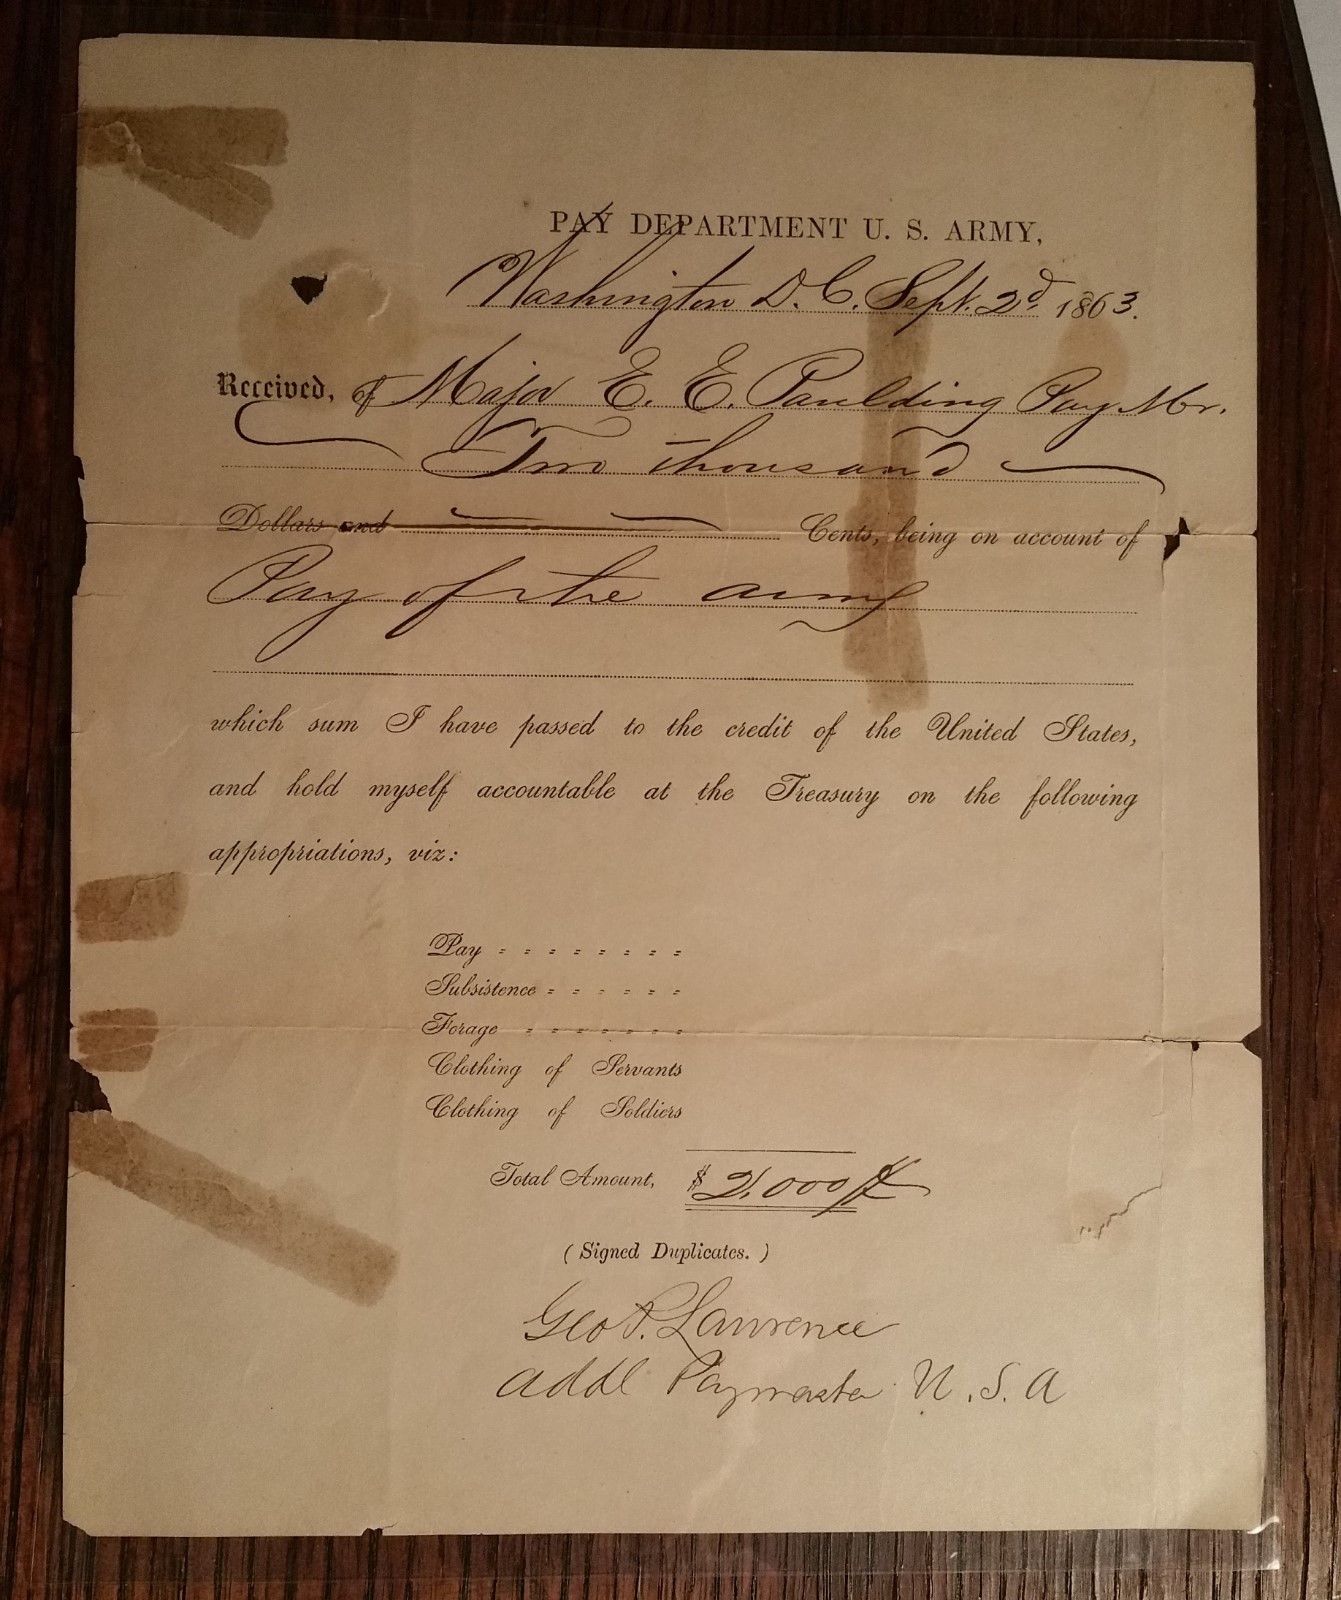 PAY DEPARTMENT U. S. ARMY,
Washington D. C. Sept. 2d. 1863.
Received, of Major E. E. Paulding Pay Mr.
Two thousand
Dollars and Cents, being on account of
Pay of the army
which sum I have passed to the credit of the United States,
and hold myself accountable at the Treasury on the following
appropriations, viz:
Pay - - - - - - - -
Subsistence - - - - - -
Forage - - - - - - -
Clothing of Servants
Clothing of Soldiers
Total Amount, $2,000
(Signed Duplicates.)
Geo P. Lawrence
addl Paymaster U.S.A